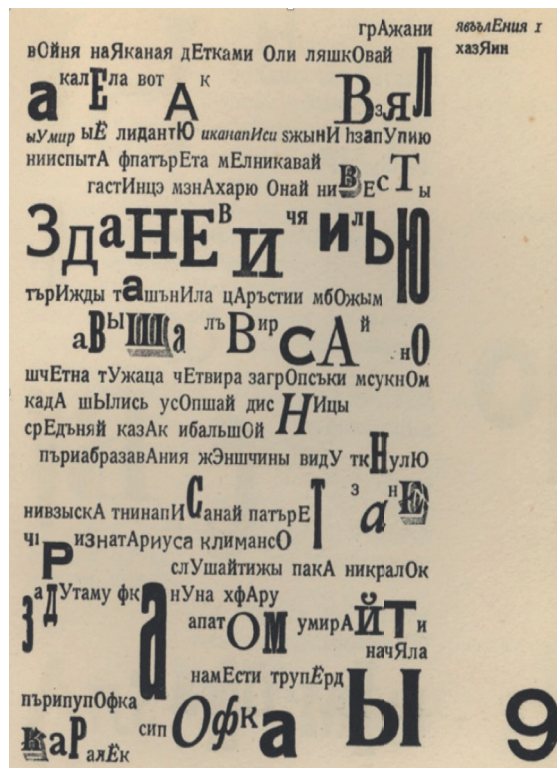 грАжани
явъълЕния 1
хазЯин
вОйня наЯканая дЕтками Оли ляшкОвай
а калЕла вот А к ВзяЛ
ыУмир ыЁ лидантЮ иканапИси sжынИ hзапУпию
нииспытА фпатърЕта мЕлникавай
гастИнцэ мзнАхарю Онай ниВЕсТы
ЗдаНЕВИчя ильЮ
търИжды ташънИла цАръстии мбОжым
аВыЩЩа лъВирсАй нО
шчЕтна тУжаца чЕтвира загрОпсъки мсукнОм
кадА шЫлись усОпшай дисНИцы
срЕдъняй казАк ибальшОй
пъриабразавАния жЭншчины видУ ткНулЮ
нивзыскА тнинапИСанай патърЕТ занЕ
чıРизнатАриуса климансО
слУшайтижы пакА никралОк
задУтаму фканУна хфАру
апатОМ умирАЙТи
начЯла
намЕсти трупЁрдЫ
пърипупОфка
КаРалЁк сипОфка
9